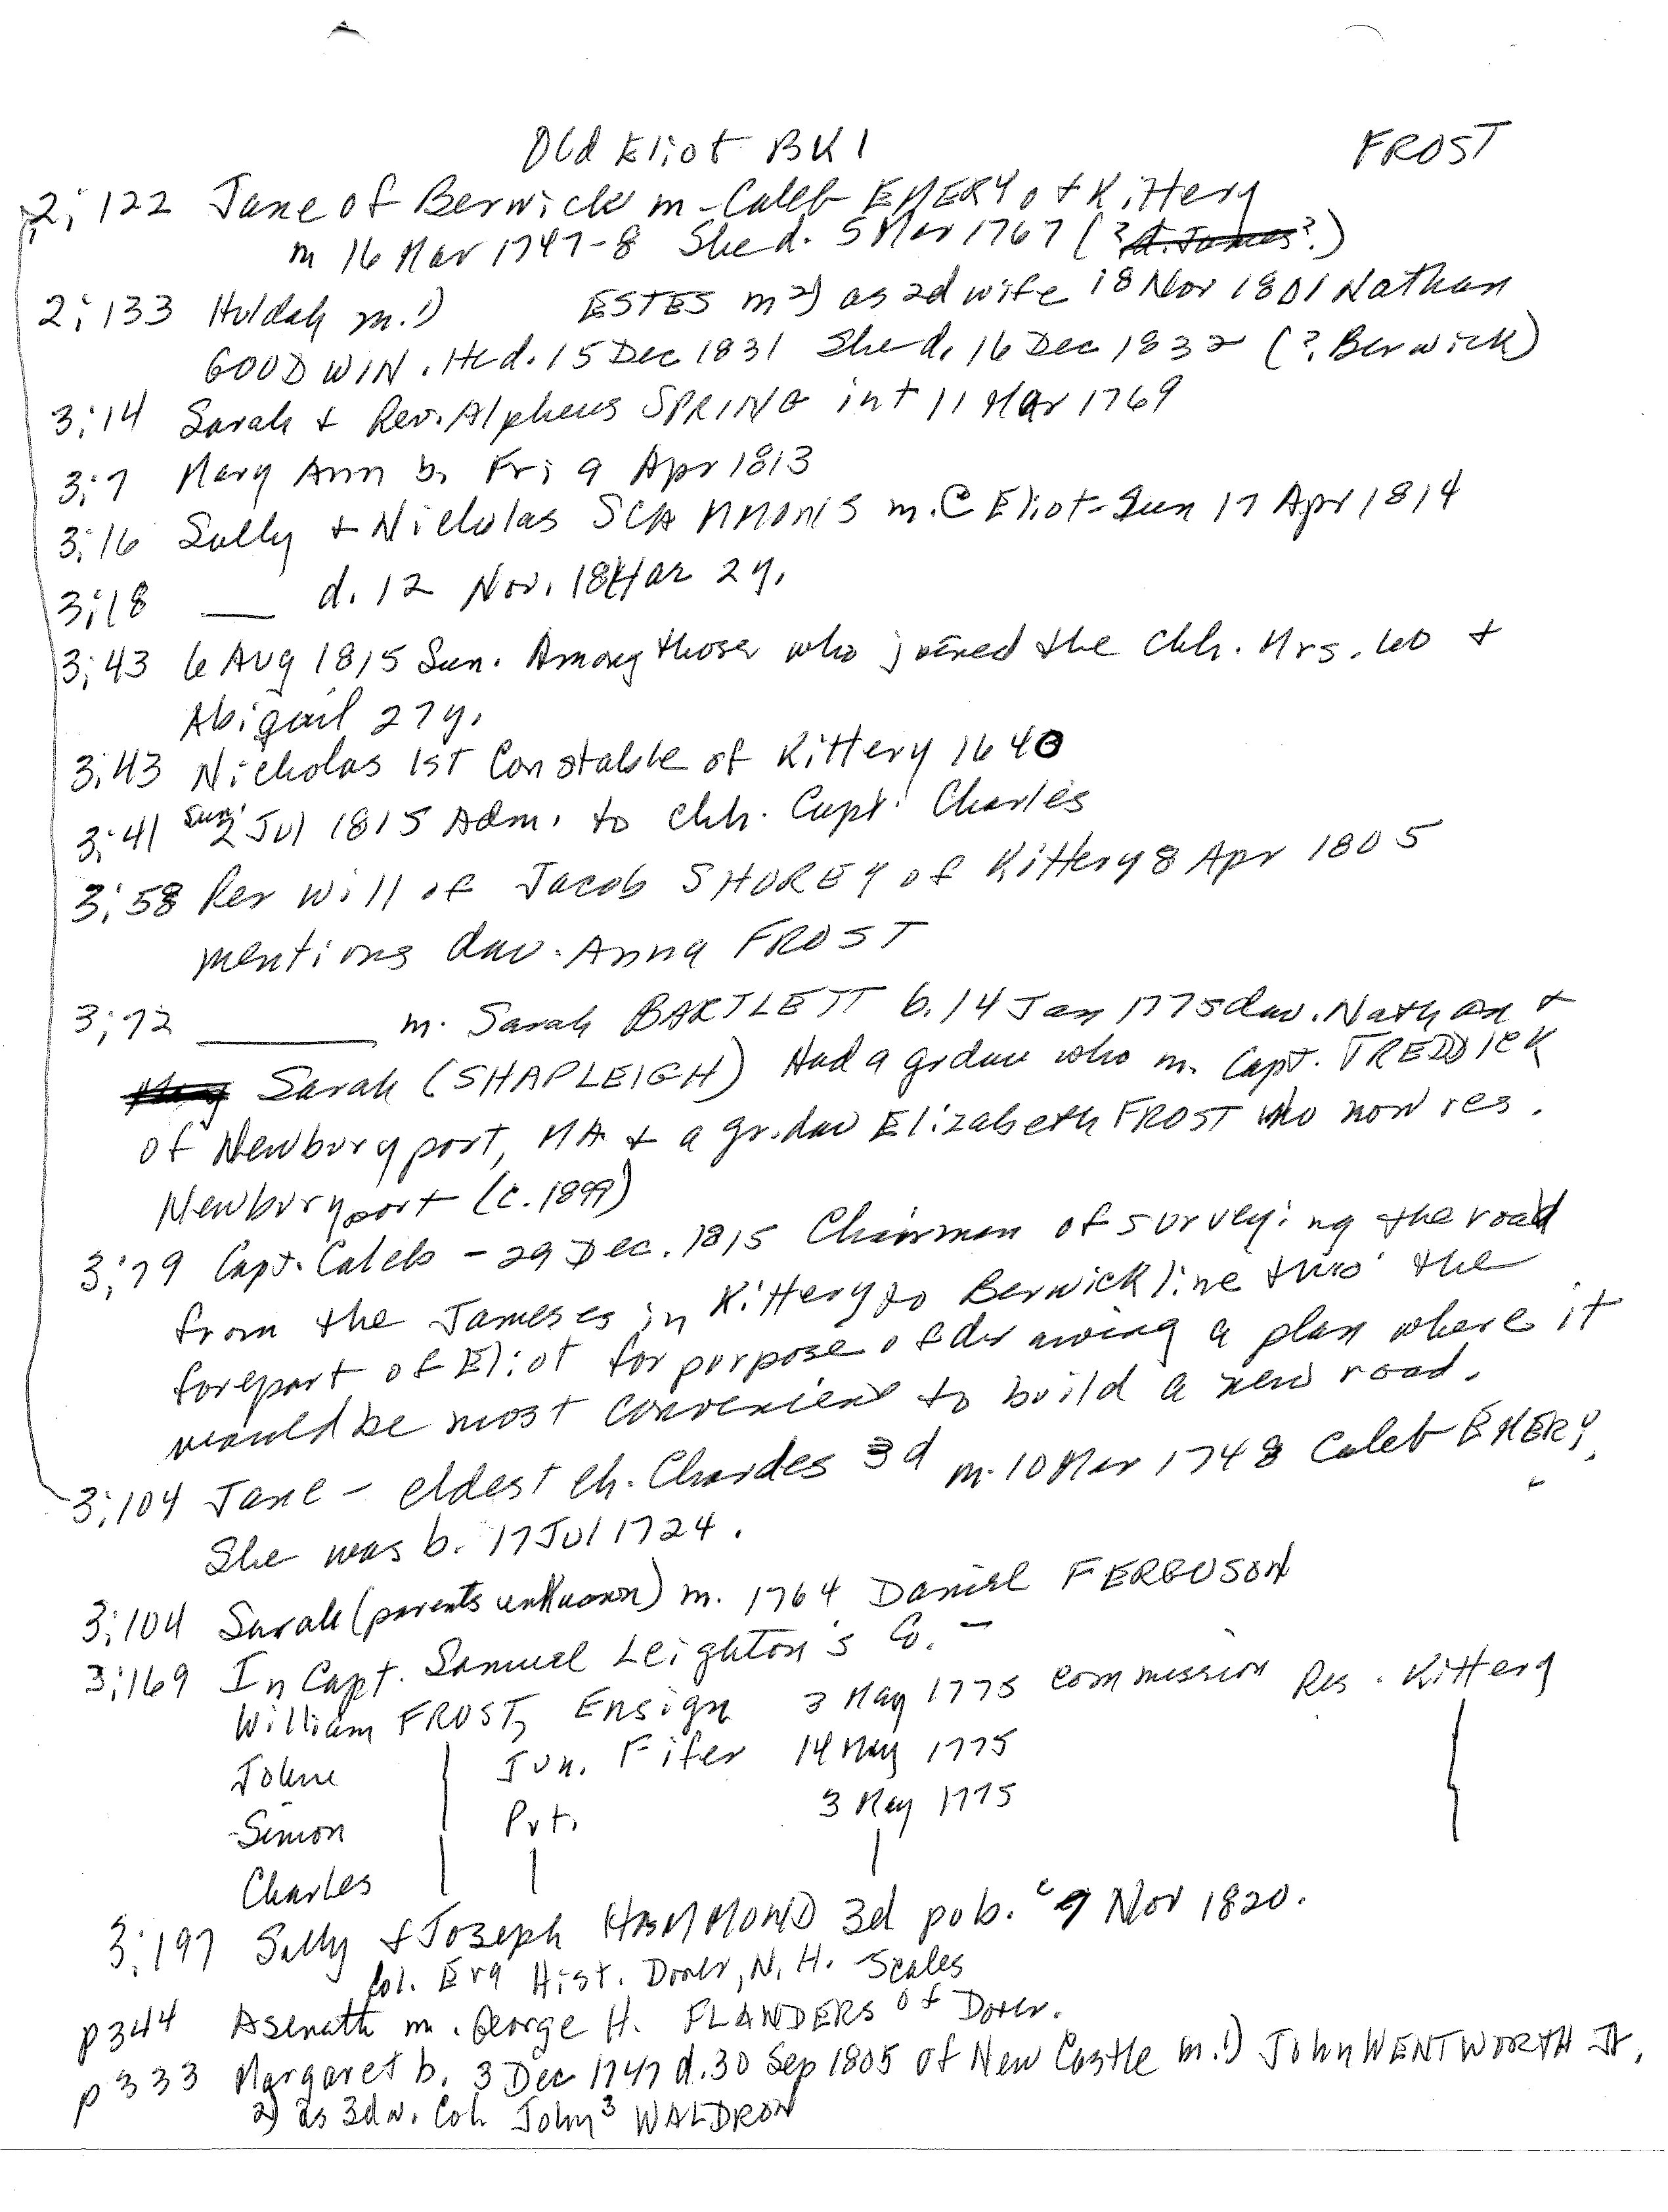 Old Eliot BK 1 FROST
2;122 Jane of Berwick m - Caleb EMERY of Kittery
m 16 Mar 1747-8 She d. 5 Mar 1767 (? d. James ?)
2;133 Huldah m.1) ESTES m 2) as 2d wife 18 Nov 1801 Nathan
GOODWIN. He d. 15 Dec 1831 She d. 16 Dec 1832 (?, Berwick)
3;14 Sarah + Rev. Alpheus SPRING int 11 Mar 1769
3;7 Mary Ann b. Fri 9 Apr 1813
3;16 Sally + Nicholas SCAMMONS m. @ Eliot - Sun 17 Apr 1814
3;18 ___ d. 12 Nov. 1814 ae 2 y.
3;43 6 Aug 1815 Sun. Among those who joined the chh. Mrs. 60 +
Abigail 27y.
3;43 Nicholas 1st Constable of Kittery 1640
3;41 Sun. 2 Jul 1815 Adm. to chh. Capt. Charles
3;58 Per will of Jacob SHOREY of Kittery 8 Apr 1805
mentions dau. Anna FROST
3;72 ______ m. Sarah BARTLETT b. 14 Jan 1775 dau. Nathan +
Sarah (SHAPLEIGH) Had a grdau who m. Capt. TREDDICK
of Newburyport, MA + a gr.dau Elizabeth FROST who now res.
Newburyport (c. 1899)
3;79 Capt. Caleb - 29 Dec. 1815 Chairman of surveying the road
from the Jameses in Kittery to Berwick line thro' the
forepart of Eliot for purpose of drawing a plan where it
would be most convenient to build a new road.
3;104 Jane - eldest ch. Charles 3d m. 10 Mar 1748 Caleb EMERY.
She was b. 17 Jul 1724.
3;104 Sarah (parents unknown) m. 1764 Daniel FERGUSON
3;169 In Capt. Samuel Leighton's Co. -
William FROST, Ensign 3 May 1775 commission Res. Kittery
John Jun. Fifer 14 May 1775
Simon Pvt. 3 May 1775
Charles
3;197 Sally + Joseph HAMMOND 3d pub. 9 Nov 1820.
Col. Era Hist. Dover, N.H. Scales
p344 Asenath m. George H. FLANDERS of Dover.
p333 Margaret b. 3 Dec 1747 d. 30 Sep 1805 of New Castle m.1) John WENTWORTH Jr.
2) as 3d w. Col. John 3 WALDRON